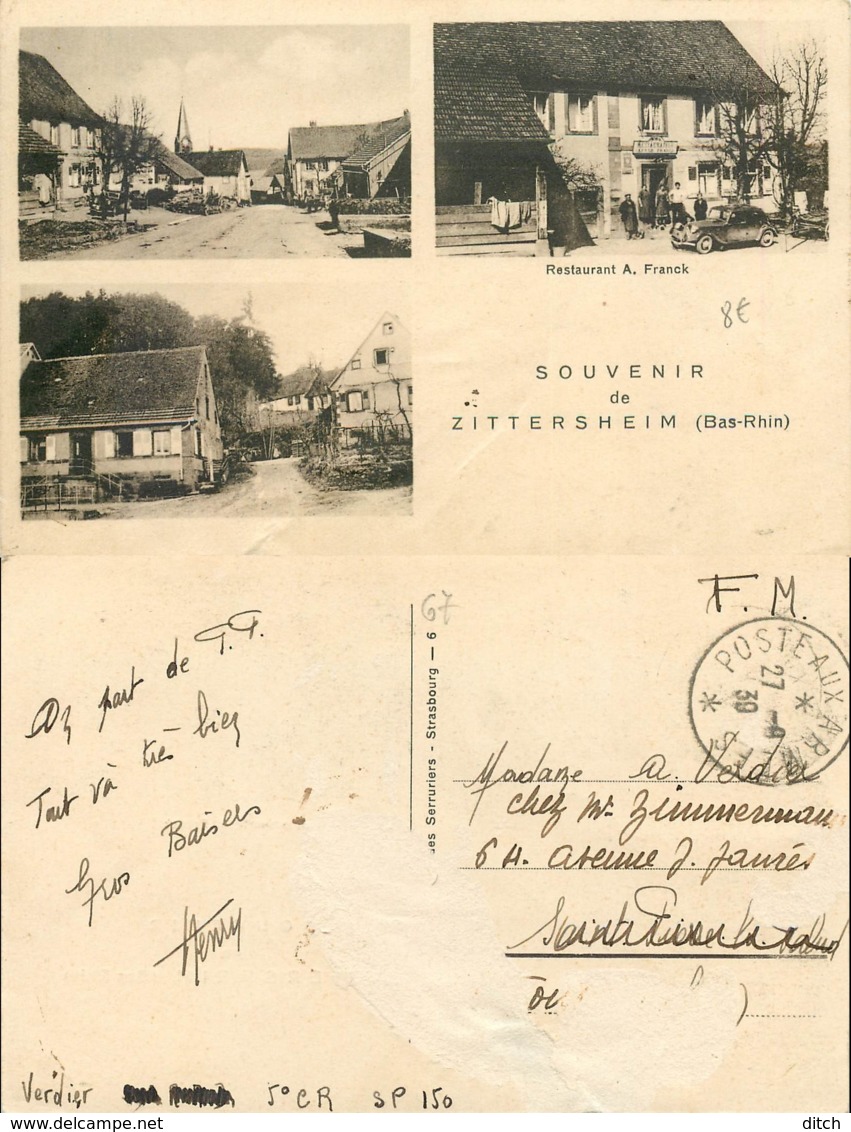 RESTAURANT
Restaurant A. Franck
8€
SOUVENIR
de
ZITTERSHEIM (Bas-Rhin)
67
F. M.
POSTE AUX ARMÉES
27 -9
39
part de
Tout và très bien
Gros Baisers
Henry
es Serruriers - Strasbourg — 6
Madame A. Verdier
chez Mr Zimmermann
64. avenue J. Jaurès
Verdier
5° CR SP 150
ditch